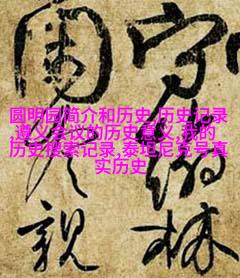 圆明园简介和历史,历史记录
,遵义会议的历史意义,我的
历史搜索记录,泰坦尼克号真
实历史
守林
親